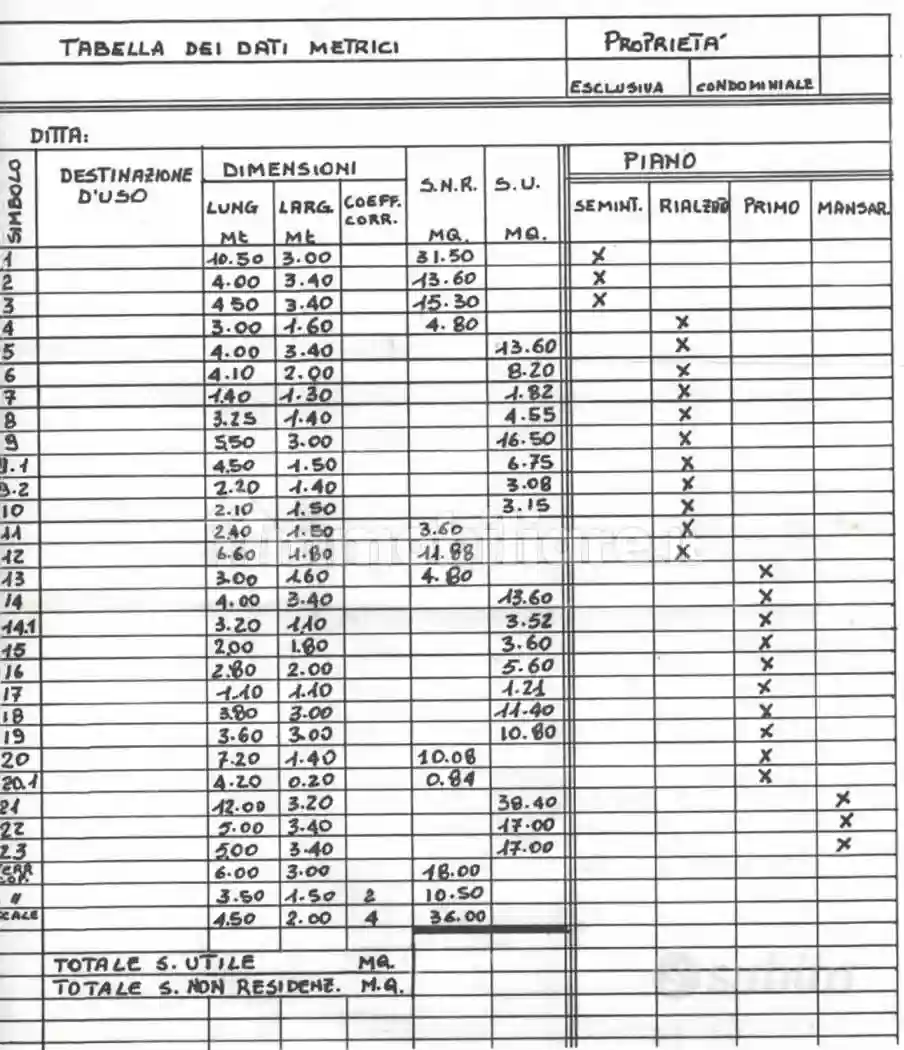 TABELLA DEI DATI METRICI PROPRIETA'
ESCLUSIVA CONDOMINIALE
DITTA:
SIMBOLO DESTINAZIONE D'USO DIMENSIONI S.N.R. S.U. PIANO
LUNG LARG. COEFF. CORR. SEMINT. RIALZATO PRIMO MANSAR.
Mt Mt MQ. MQ.
1 10.50 3.00 31.50 X
2 4.00 3.40 13.60 X
3 4 50 3.40 15.30 X
4 3.00 1.60 4.80 X
5 4.00 3.40 13.60 X
6 4.10 2.00 8.20 X
7 1.40 1.30 1.82 X
8 3.25 1.40 4.55 X
9 5,50 3.00 16.50 X
9.1 4,50 1.50 6.75 X
9.2 2.20 1.40 3.08 X
10 2.10 1.50 3.15 X
11 2,40 1.50 3.60 X
12 6.60 1.80 11.88 X
13 3.00 1,60 4.80 X
14 4.00 3.40 13.60 X
14.1 3.20 1,10 3.52 X
15 2,00 1.80 3.60 X
16 2.80 2.00 5.60 X
17 1.10 1.10 1.21 X
18 3.80 3.00 11.40 X
19 3.60 3.00 10.80 X
20 7.20 1.40 10.08 X
20.1 4.20 0.20 0.84 X
21 12.00 3.20 38.40 X
22 5.00 3.40 17.00 X
23 5,00 3.40 17.00 X
6.00 3.00 18.00
" 3.50 1.50 2 10.50
CALE 4,50 2.00 4 36.00
TOTALE S. UTILE MQ.
TOTALE S. NON RESIDENZ. M.Q.
immobiliare.it